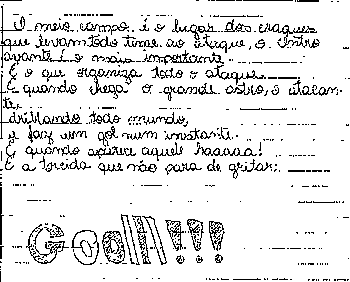 O meio campo é o lugar dos craques
que levam todo time ao ataque, o centro
avante é o mais importante.
E o que organiza todo o ataque
E quando chega o grande astro, o atacan-
te,
driblando todo mundo,
e faz um gol num instante.
E quando aparece aquele haaaaa!
É a torcida que não para de gritar:
Goollll!!!